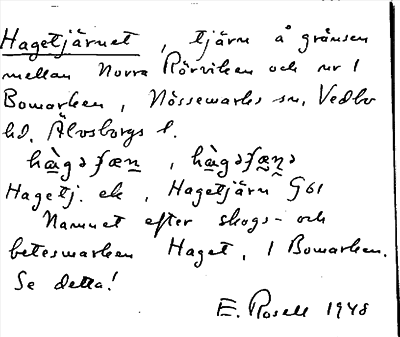 Hagetjärnet, tjärn å gränsen
mellan Norra Rörviken och nr 1
Bomarken, Nössemarks sn, Vedbo
hd, Älvsborgs l.
hàgəʃæn, hàgəʃænə
Hagetj. ek, Hagetjärn G61
Namnet efter skogs- och
betesmarken Haget, 1 Bomarken.
Se detta!
E. Rosell 1948